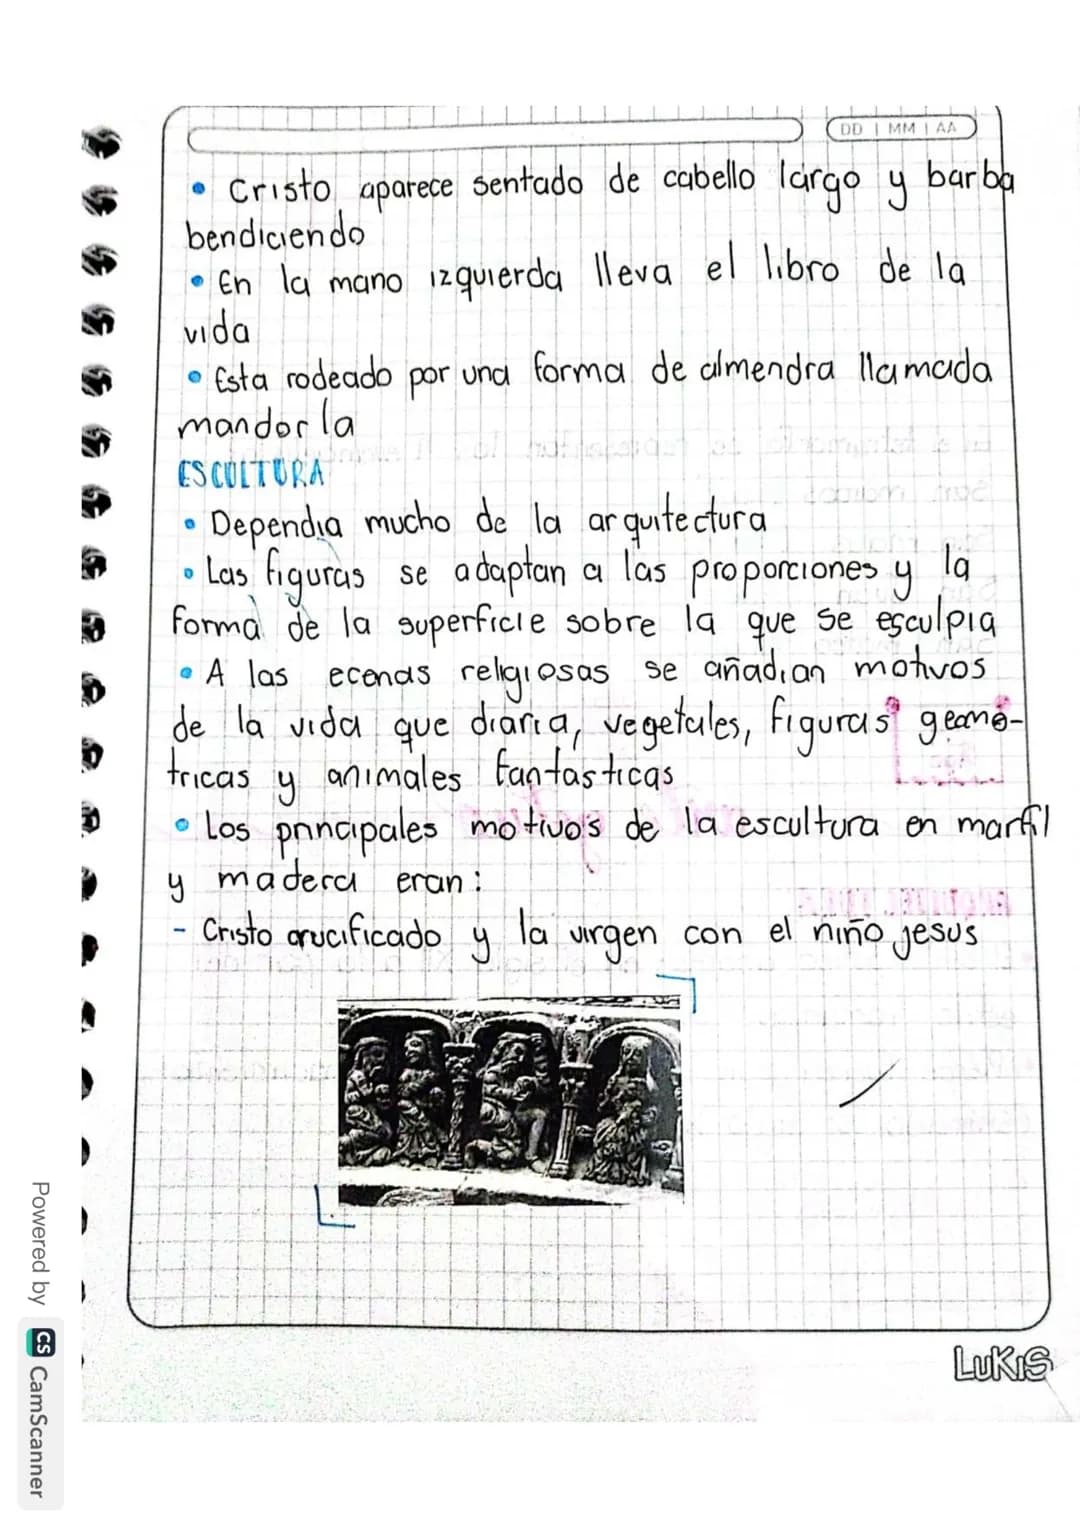 DD | MM | AA
• Cristo aparece sentado de cabello largo y barba
bendiciendo
• En la mano izquierda lleva el libro de la
vida
• Esta rodeado por una forma de almendra llamada
mandorla
ESCULTURA
• Dependia mucho de la arquitectura
• Las figuras se adaptan a las proporciones y la
forma de la superficie sobre la que se esculpia
• A las ecenas religiosas se añadian motivos
de la vida que diaria, vegetales, figuras geome-
tricas y animales fantasticas
• Los principales motivos de la escultura en marfil
y madera eran:
- Cristo crucificado y la virgen con el niño jesus
LUKIS
Powered by CS CamScanner